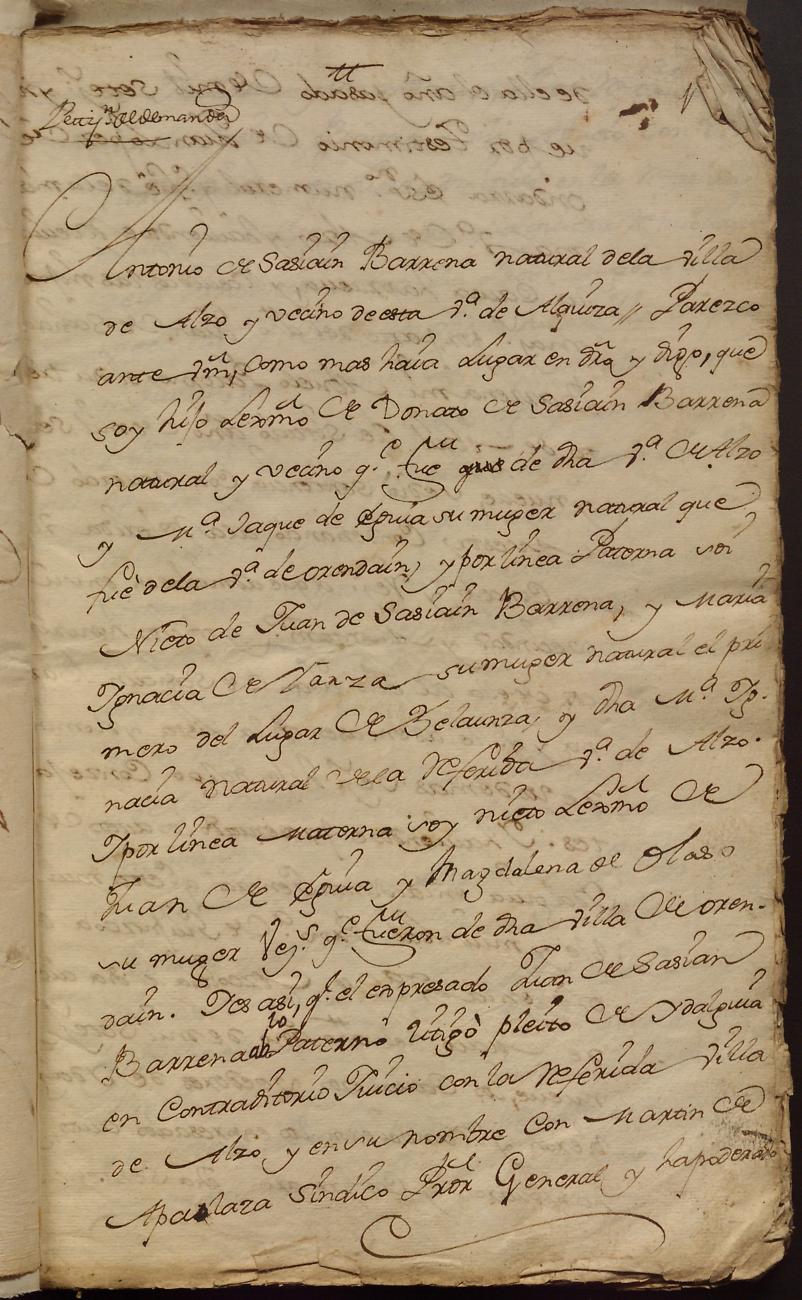 tt
1
Pettiⁿ. de demanda
Antonio de Sasiain Barrena natural dela villa
de Alzo y vecino de esta vª. de Alquiza // Parezco
ante vm̃, como mas haia Lugar en dr̃o y digo, que
soy hijo Lexmo de Donato de Sasiain Barrena
natural y vecino q.e fue de dha vª de Alzo
y Mª. Jaque de Eguia su muger natural que
fue dela vª. de orendain, y por linea Paterna soi
Nieto de Juan de Sasiain Barrena, y Maria
Ygnacia de Vanza su muger natural el pri
mero del Lugar de Belaunza, y dha Mª. Ig-
nacia natural dela referida vª. de Alzo.
Y por linea Materna soy nieto Lexmo de
Juan de Eguia y Magdalena de Olaso
su muger Vez.s q.e fueron de dha villa de oren-
dain. Y es asi, q.e el enpresado Juan de Sasian
Barrena abuelo Paterno litigò pleito de Ydalguia
en Contraditorio Juicio con la referida villa
de Alzo, y en su nombre Con Martin de
Apalaza Sindico Pror General y hapoderado